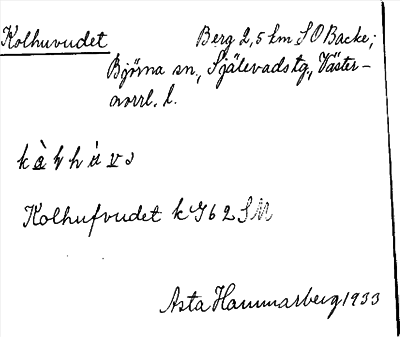 Kolhuvudet Berg 2,5 km SO Backe;
Björna sn, Själevads tg, Väster-
norrl. l.
Kolhufvudet k G 62 SM
Asta Hammarberg 1933